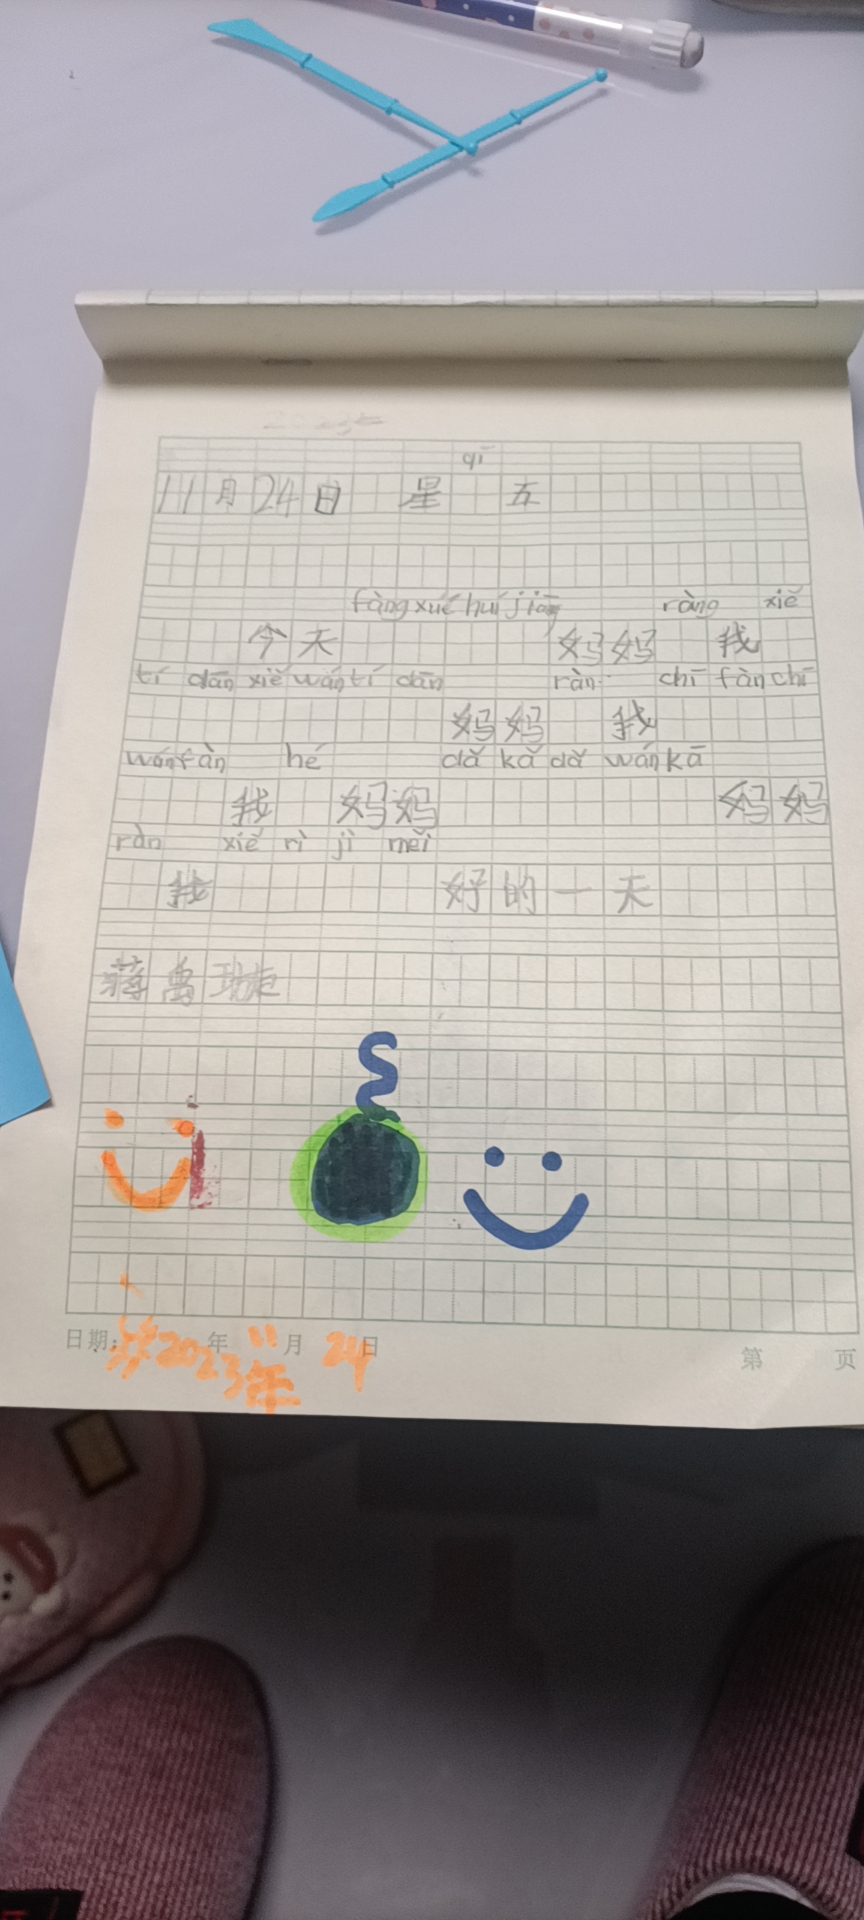 qī
11月24日 星 五
fàng xué huí jiāng ràng xiě
今天 妈妈 我
tí dān xiě wán tí dān ràn chī fàn chī
妈妈 我
wán fàn hé dǎ kǎ dǎ wán kā
我 妈妈 妈妈
ràn xiě rì jì měi
我 好的一天
蒋禹
日期: 2023年 11月 24日
年
第 页